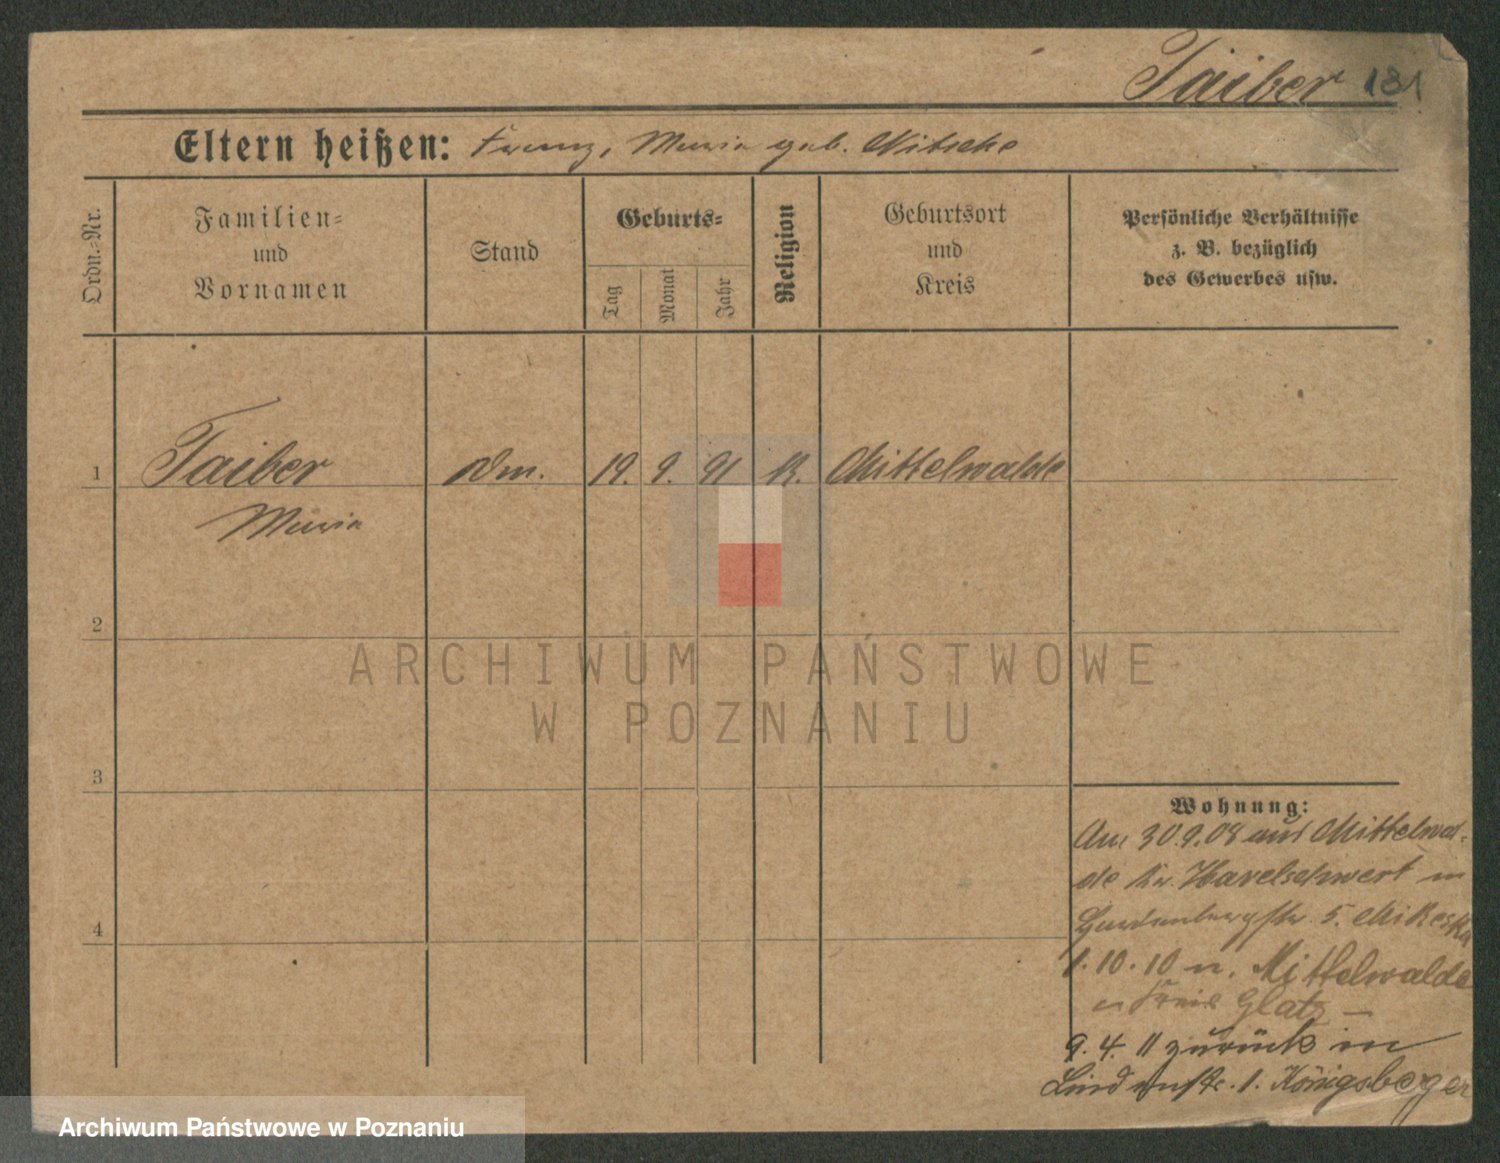 Taiber 131
Eltern heißen: Franz, Maria geb. Nitsche
Ordn.-Nr.
Familien-
und
Vornamen
Stand
Geburts-
Tag
Monat
Jahr
Religion
Geburtsort
und
Kreis
Persönliche Verhältnisse
z. B. bezüglich
des Gewerbes usw.
1 Taiber 19. 9. 91 K. Mittelwalde
Maria
2
ARCHIWUM PAŃSTWOWE
W POZNANIU
3
Wohnung:
Am 30.9.08 aus Mittelwal-
de Kr. Havelschwert in
5. Mikeska
4
1.10.10 n. Mittelwalde
Kreis Glatz –
9.4.11 zurück in
Lindenstr. 1. Königsberger
Archiwum Państwowe w Poznaniu